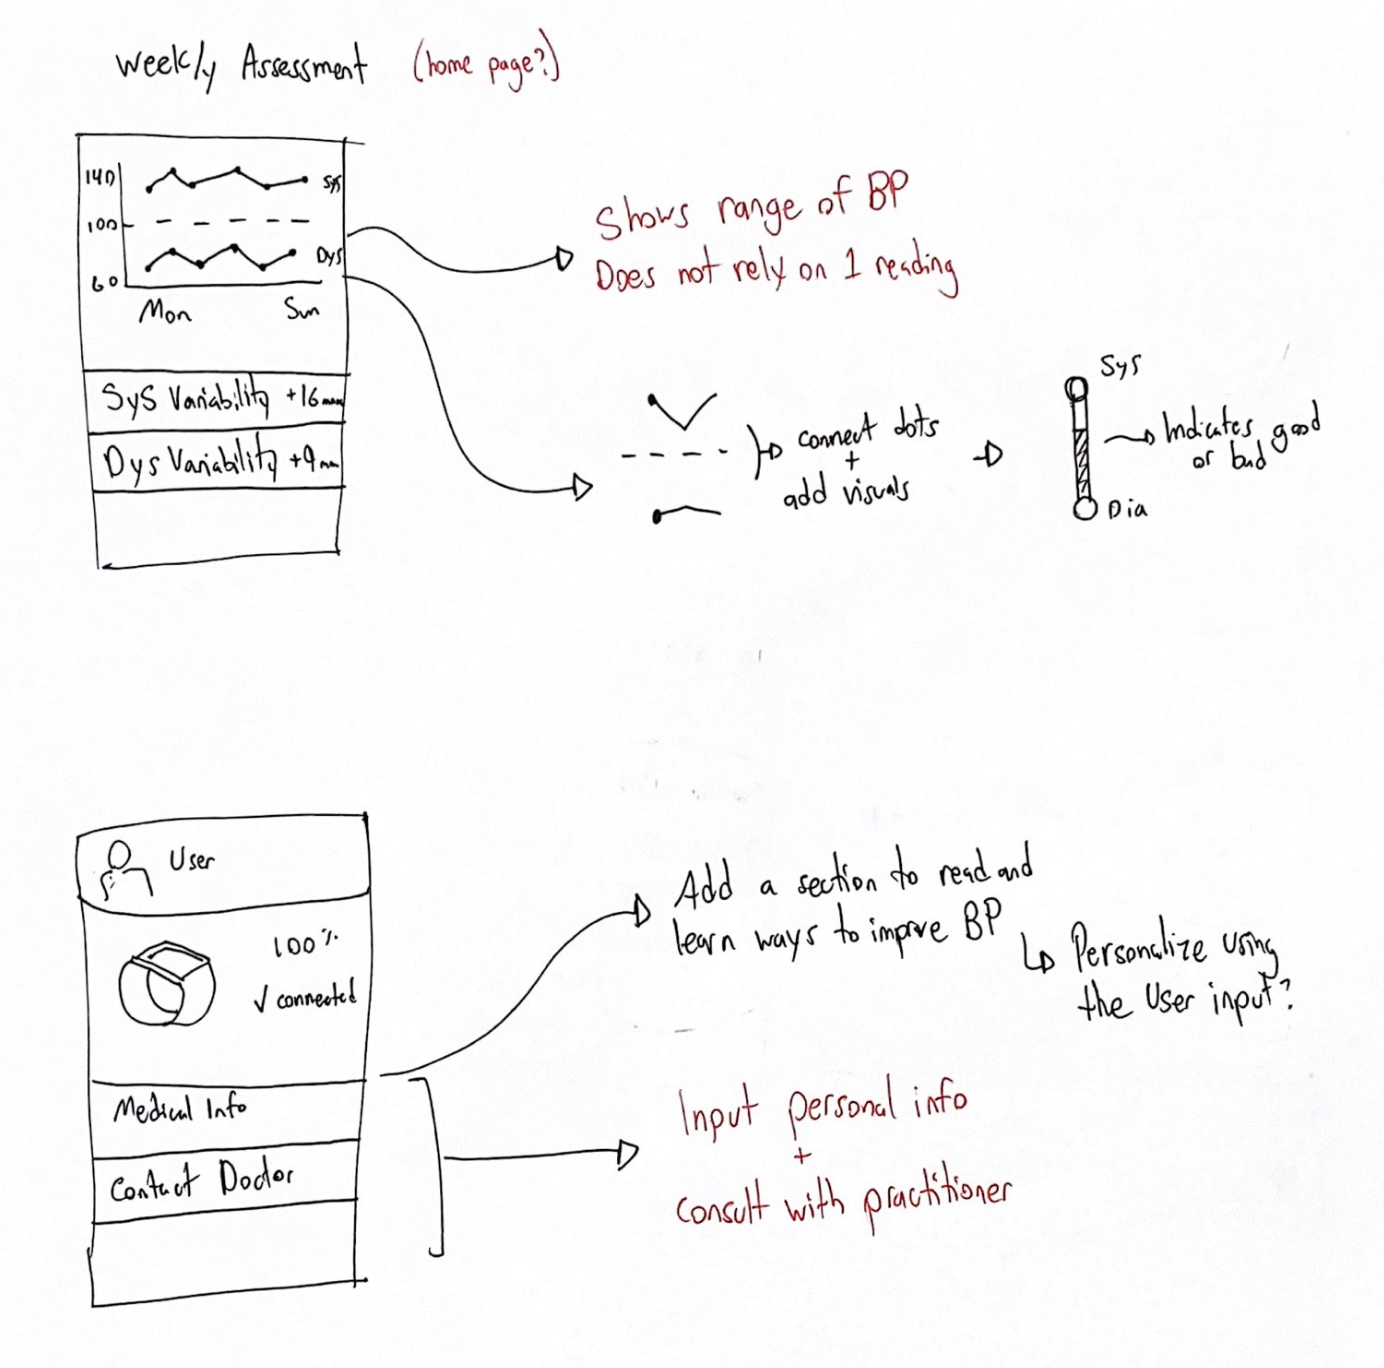 Weekly Assessment (home page?)
140
Sys
100
Dys
60
Mon Sun
Sys Variability +16mm
Dys Variability +9mm
Shows range of BP
Does not rely on 1 reading
connect dots
+
add visuals
Sys
Indicates good
or bad
Dia
User
100%
✓ connected
Medical Info
Contact Doctor
Add a section to read and
learn ways to improve BP
Personalize using
the User input?
Input personal info
+
Consult with practitioner